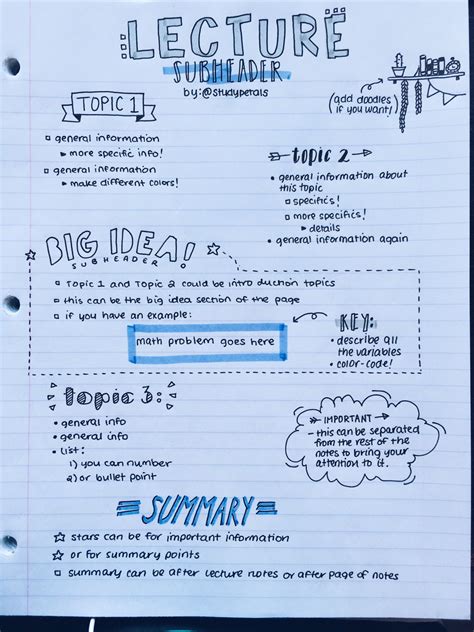 LECTURE
SUBHEADER
by:@studypetals
(add doodles
if you want!)
TOPIC 1
general information
more specific info!
general information
make different colors!
topic 2
general information about
this topic
specifics!
more specifics!
details
general information again
BIG IDEA!
SUBHEADER
Topic 1 and Topic 2 could be intro duction topics
this can be the big idea section of the page
if you have an example:
math problem goes here
KEY:
describe all
the variables
color-code!
topic 3:
general info
general info
list:
1) you can number
2) or bullet point
IMPORTANT
- this can be separated
from the rest of the
notes to bring your
attention to it.
SUMMARY
stars can be for important information
or for summary points
summary can be after lecture notes or after page of notes